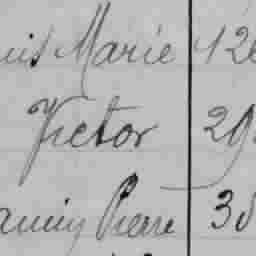 uis Marie 126
Victor 29
amin Pierre 35